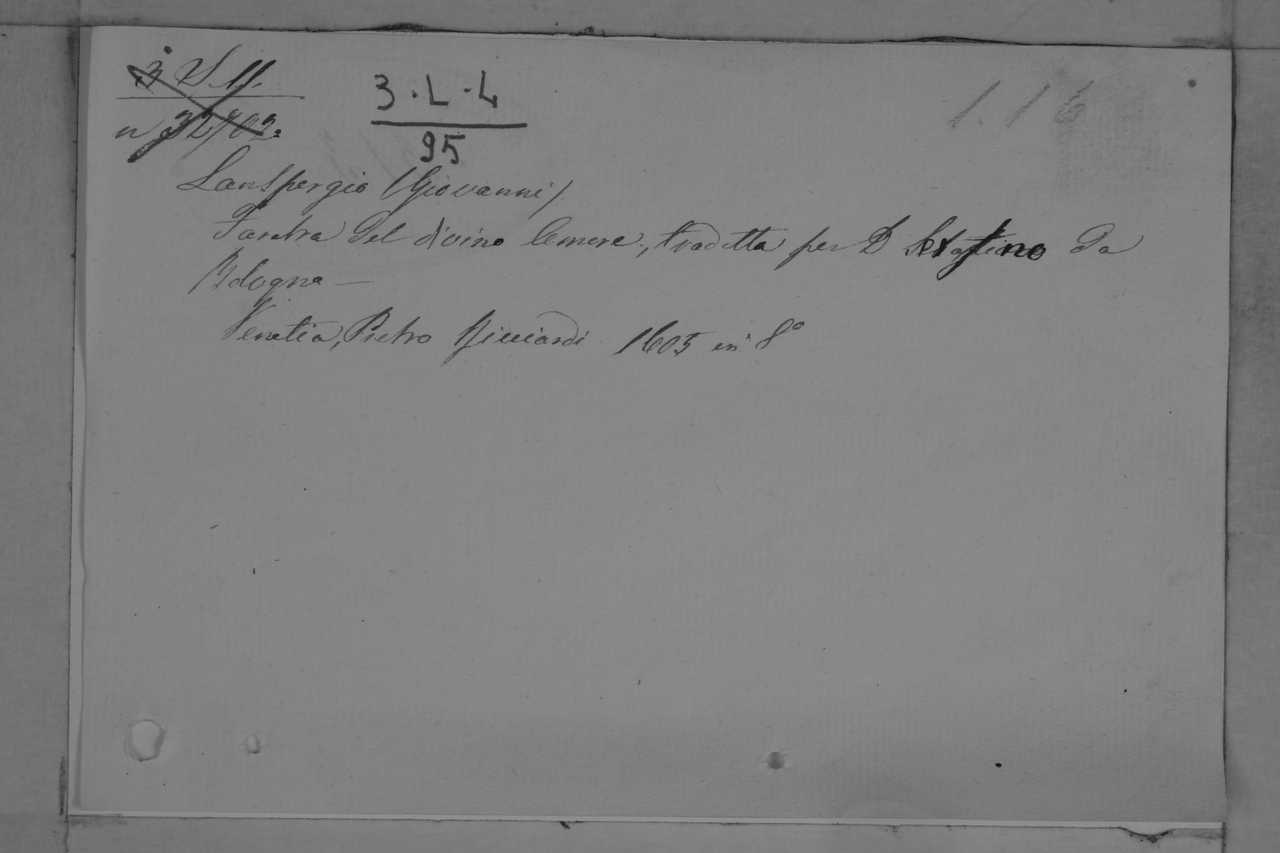 3 · L · L
95
Lanspergio (Giovanni)
Faretra del divino Amore, tradotta per D. da
Bologna —
Venetia, Pietro Ricciardi 1605 in 8°